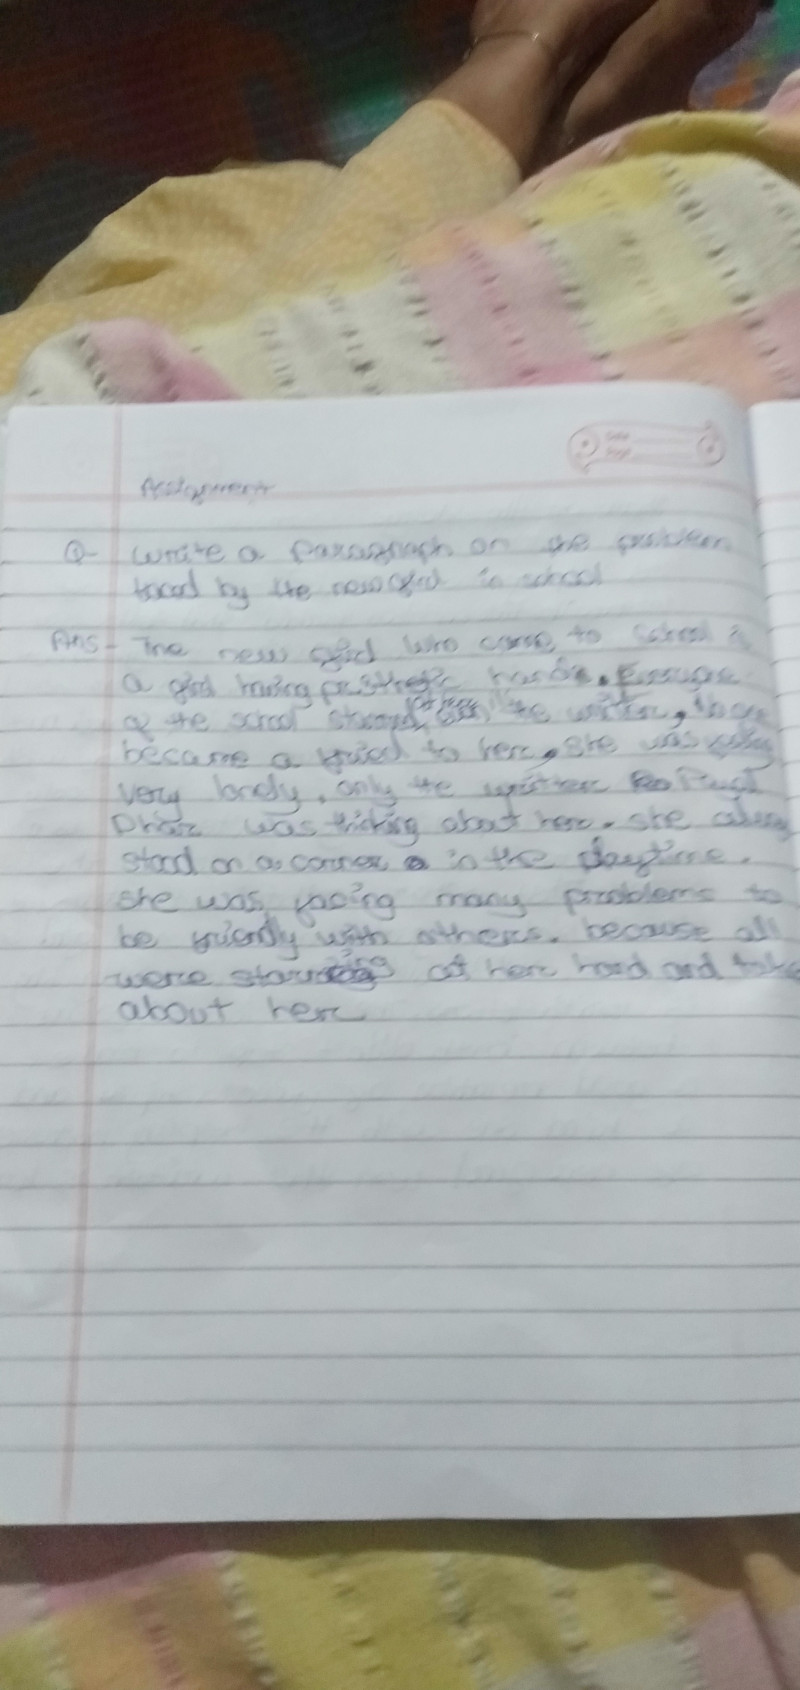 Assignment
Q- Write a paragraph on the problem
faced by the new girl in school
Ans- The new girl who came to school is
a girl having prosthetic hands. Everyone
of the school stared, the writer, No one
became a friend to her, she was
very lonely, only the writter
Dhar was thinking about her. she always
stand on a corner in the daytime.
she was facing many problems to
be friendly with others. because all
were staring at her hand and talk
about her